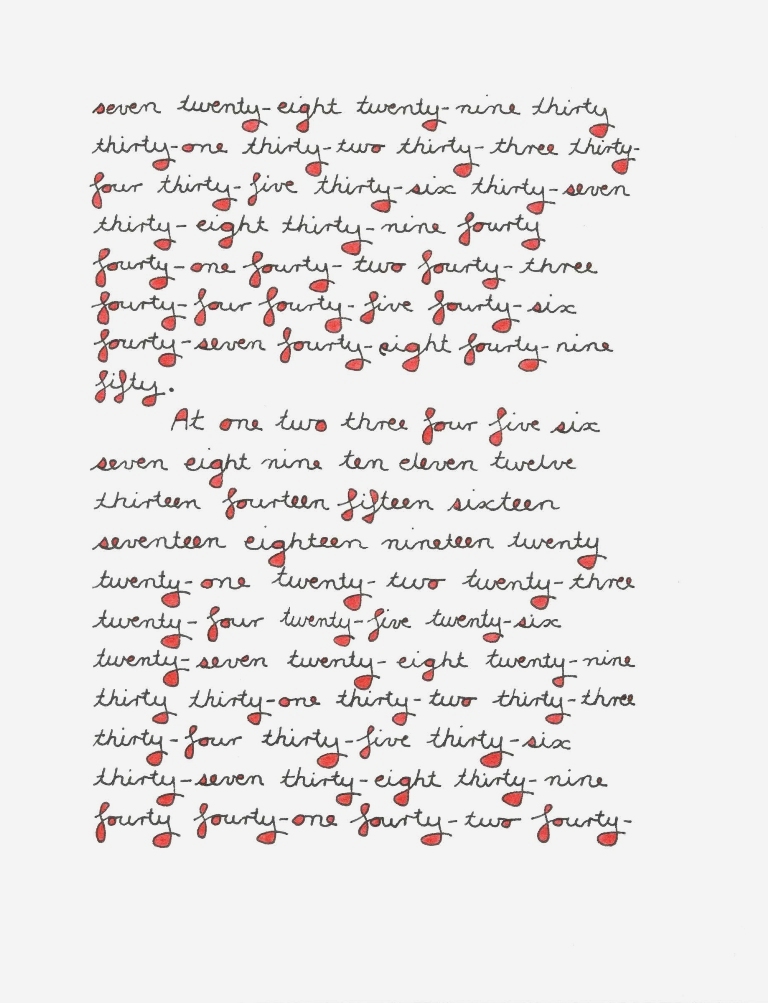 seven twenty-eight twenty-nine thirty
thirty-one thirty-two thirty-three thirty-
four thirty-five thirty-six thirty-seven
thirty-eight thirty-nine fourty
fourty-one fourty-two fourty-three
fourty-four fourty-five fourty-six
fourty-seven fourty-eight fourty-nine
fifty.
At one two three four five six
seven eight nine ten eleven twelve
thirteen fourteen fifteen sixteen
seventeen eighteen nineteen twenty
twenty-one twenty-two twenty-three
twenty-four twenty-five twenty-six
twenty-seven twenty-eight twenty-nine
thirty thirty-one thirty-two thirty-three
thirty-four thirty-five thirty-six
thirty-seven thirty-eight thirty-nine
fourty fourty-one fourty-two fourty-